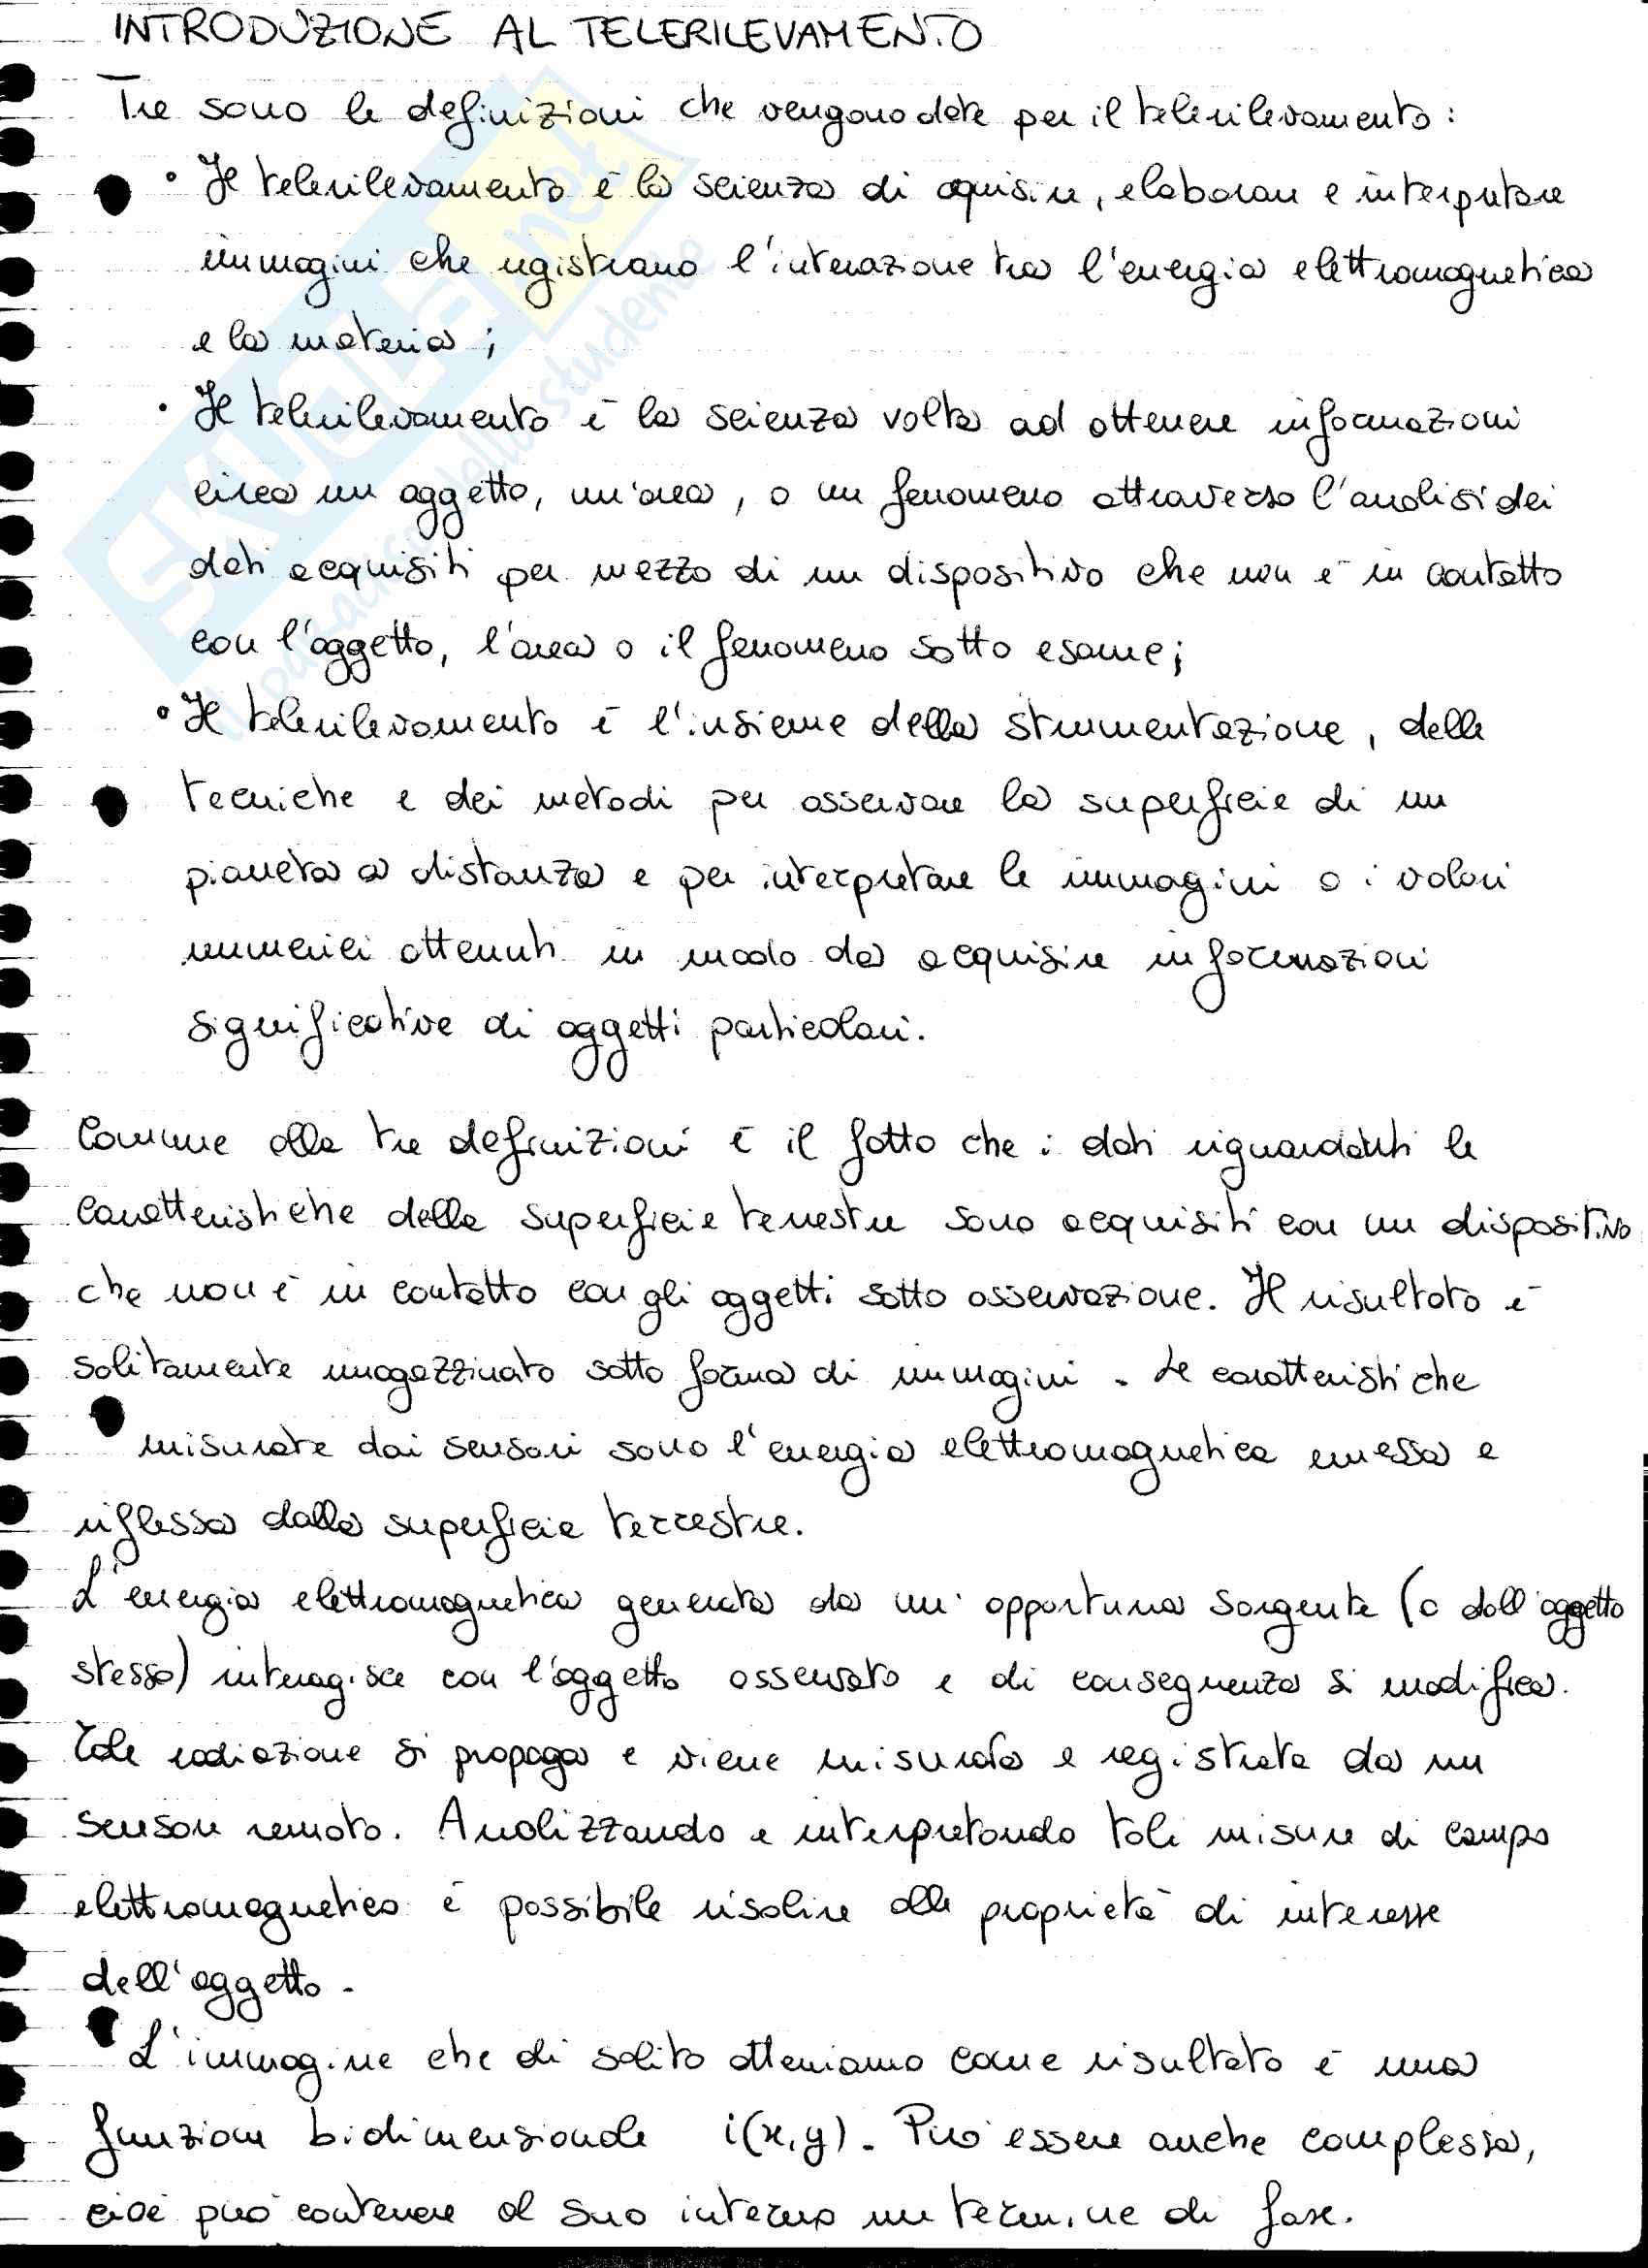 INTRODUZIONE AL TELERILEVAMENTO
Tre sono le definizioni che vengono date per il telerilevamento:
• Il telerilevamento è la scienza di aquisire, elaborare e interpretare
immagini che registrano l'interazione tra l'energia elettromagnetica
e la materia;
• Il telerilevamento è la scienza volta ad ottenere informazioni
circa un oggetto, un'area, o un fenomeno attraverso l'analisi dei
dati acquisiti per mezzo di un dispositivo che non è in contatto
con l'oggetto, l'area o il fenomeno sotto esame;
• Il telerilevamento è l'insieme della strumentazione, delle
tecniche e dei metodi per osservare la superficie di un
pianeta a distanza e per interpretare le immagini o i valori
numerici ottenuti in modo da acquisire informazioni
significative di oggetti particolari.
Comune alle tre definizioni è il fatto che i dati riguardanti le
caratteristiche della superficie terrestre sono acquisiti con un dispositivo
che non è in contatto con gli oggetti sotto osservazione. Il risultato è
solitamente immagazzinato sotto forma di immagini. Le caratteristiche
misurate dai sensori sono l'energia elettromagnetica emessa e
riflessa dalla superficie terrestre.
L'energia elettromagnetica generata da un' opportuna sorgente (o dall'oggetto
stesso) interagisce con l'oggetto osservato e di conseguenza si modifica.
Tale radiazione si propaga e viene misurata e registrata da un
sensore remoto. Analizzando e interpretando tali misure di campo
elettromagnetico è possibile risalire alle proprietà di interesse
dell'oggetto.
L'immagine che di solito otteniamo come risultato è una
funzione bidimensionale i(x,y). Può essere anche complessa,
cioè può contenere al suo interno un termine di fase.
SKUOLA.net
il paradiso dello studente